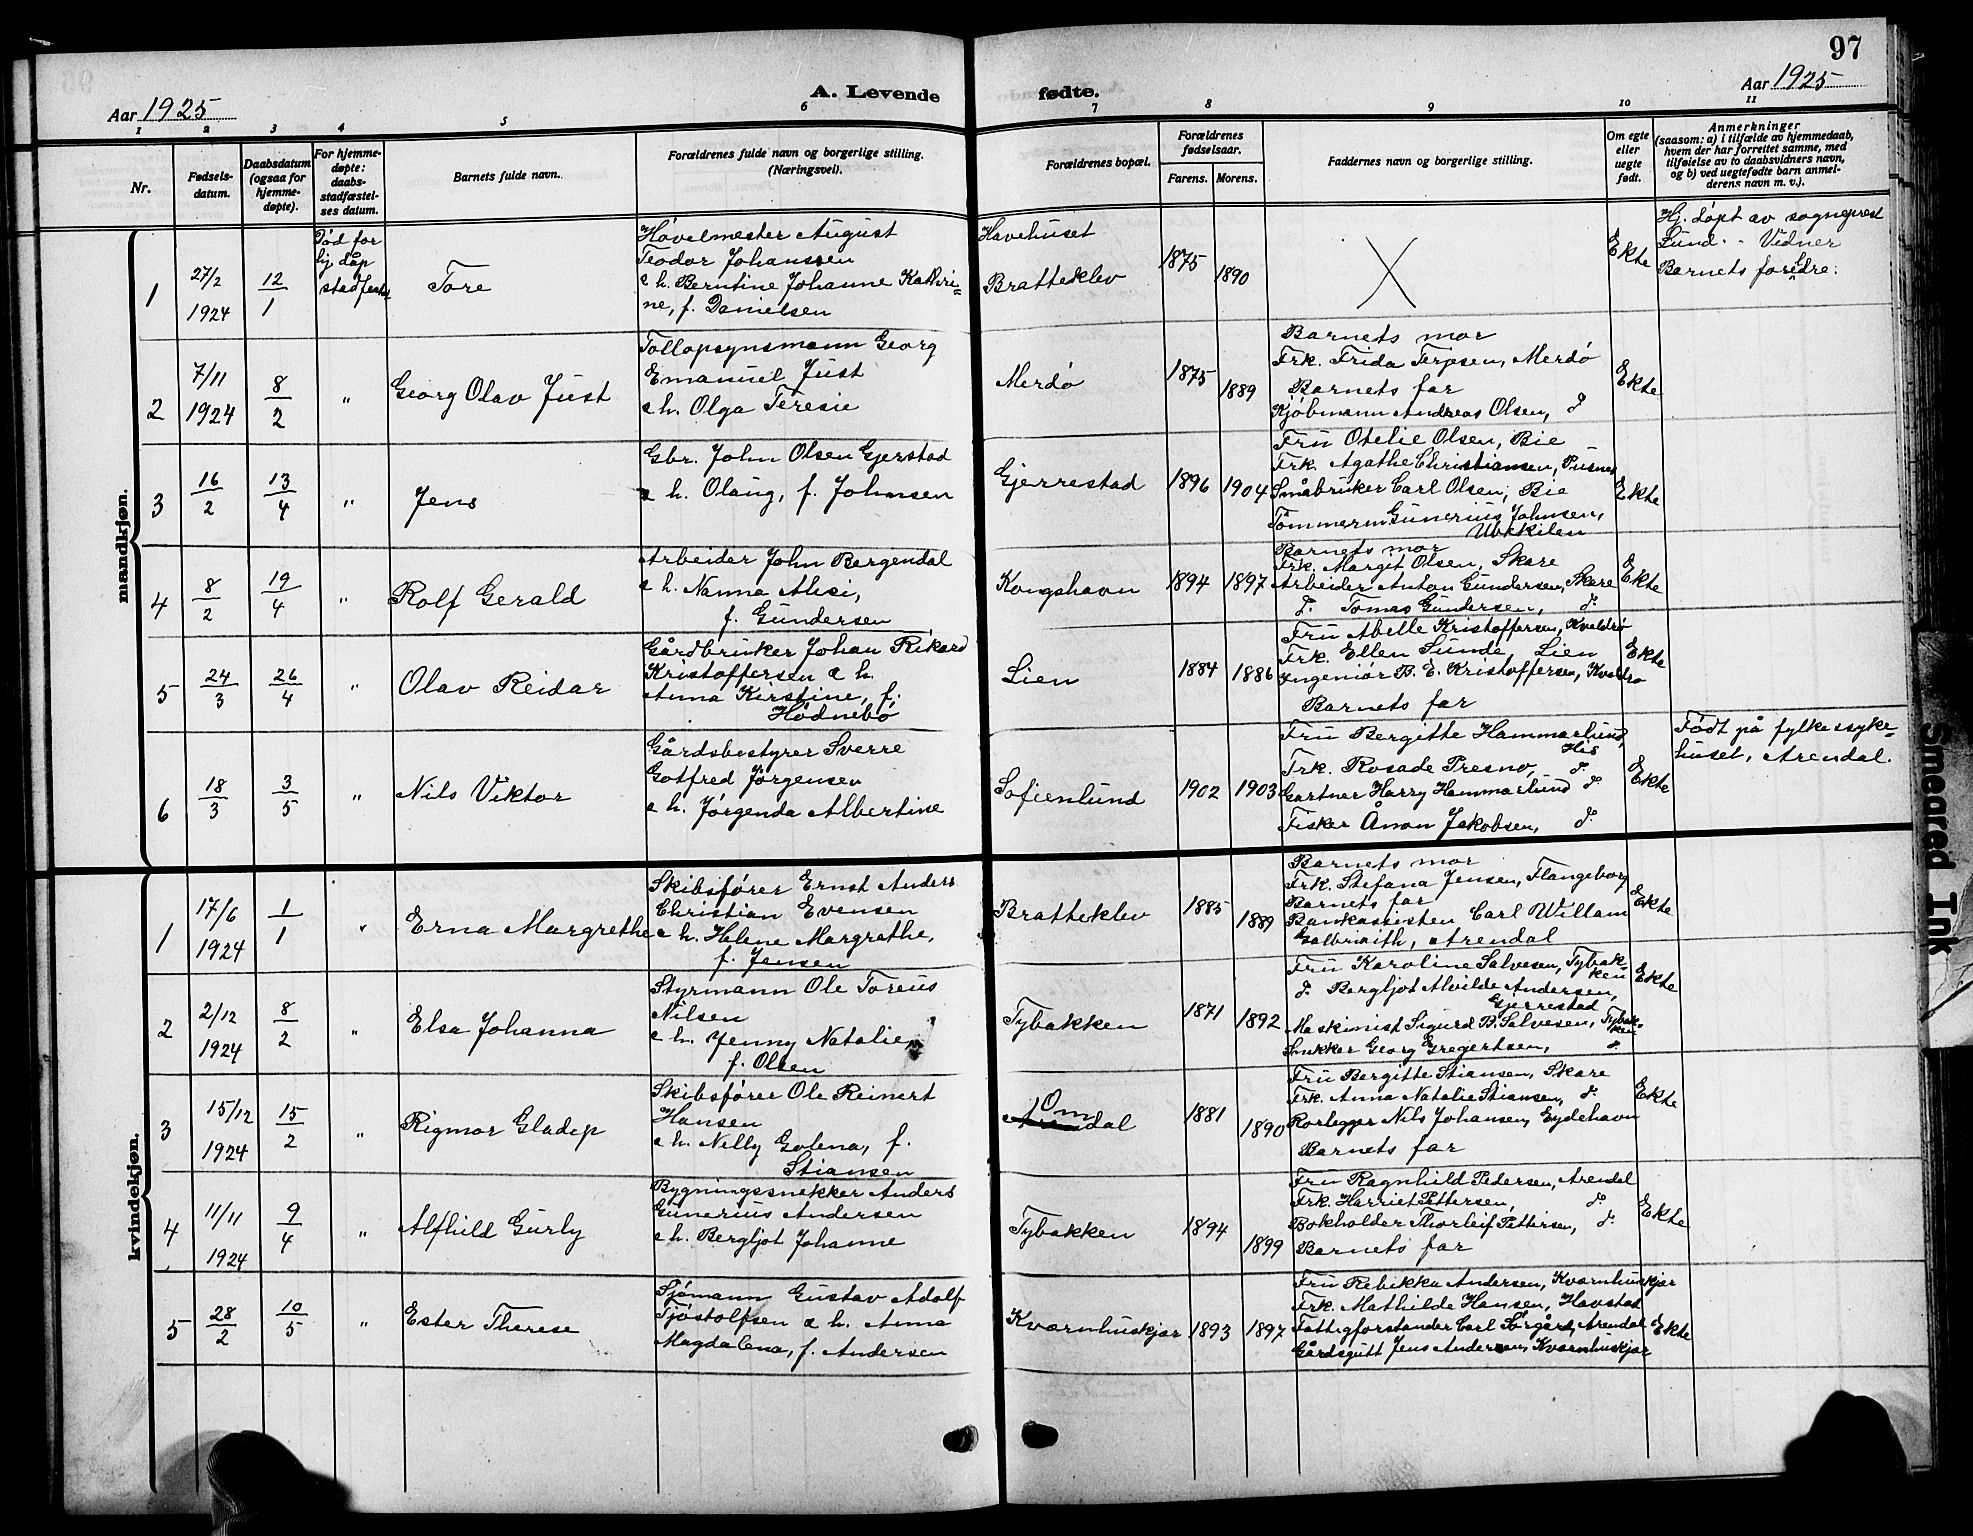 97
A. Levende fødte.
Aar 1925
Aar 1925
1 2 3 4 5 6 7 8 9 10 11
Nr.
Fødsels-
datum.
Daabsdatum
(ogsaa for
hjemme-
døpte).
For hjemme-
døpte:
daabs-
stadfæstel-
ses datum.
Barnets fulde navn.
Forældrenes fulde navn og borgerlige stilling.
(Næringsvei).
Forældrenes bopæl.
Forældrenes
fødselsaar.
Farens. Morens.
Faddernes navn og borgerlige stilling.
Om egte
eller
uegte
født.
Anmerkninger
(saasom: a) i tilfælde av hjemmedaab,
hvem der har forrettet samme, med
tilføielse av to daabsvidners navn,
og b) ved uegtefødte barn anmel-
derens navn m. v.).
mandkjøn.
1
27/2
1924
12/1
Død før
hj. dåp
stadfestet
Tore
Høvelmester August
Teodor Johanssen
& h. Berntine Johanne Kathri-
ne, f. Danielsen
Havehuset
Bratteklev
1875
1890
X
Ekte
Hj. døpt av sogneprest
Lund. - Vidner
Barnets foreldre.
2
7/11
1924
8/2
"
Georg Olav Just
Tollopsynsmann Georg
Emanuel Just
& h. Olga Teresie
Merdø
1875
1889
Barnets mor
Frk. Frida Terjesen, Merdø
Barnets far
Kjøbmann Andreas Olsen, d°
Ekte
3
16/2
13/4
"
Jens
Gbr. John Olsen Gjerstad
& h. Olaug, f. Johnsen
Gjerrestad
1896
1904
Fru Otelie Olsen, Bie
Frk. Agathe Christiansen, Pusnes
Småbruker Carl Olsen, Bie
Tømmerm. Gunerius Johnsen,
Ubekilen
Ekte
4
8/2
19/4
"
Rolf Gerald
Arbeider John Bergendal
& h. Nanna Alisi,
f. Gundersen
Kongshavn
1894
1897
Barnets mor
Frk. Margit Olsen, Skare
Arbeider Anton Gundersen, Skare
d° Tomas Gundersen, d°
Ekte
5
24/3
26/4
"
Olav Reidar
Gårdbruker Johan Rikard
Kristoffersen & h.
Anna Kirstine, f.
Hødnebø
Lien
1884
1886
Fru Abelle Kristoffersen, Kveldro
Frk. Ellen Sunde, Lien
Ingeniør B. E. Kristoffersen, Kveldro
Barnets far
Ekte
6
18/3
3/5
"
Nils Viktor
Gårdsbestyrer Sverre
Gotfred Jørgensen
& h. Jørgenda Albertine
Sofienlund
1902
1903
Fru Bergitte Hammarlund,
His
Frk. Rosade Presno, d°
Gartner Harry Hammarlund d°
Fisker Ånon Jakobsen, d°
Ekte
Født på fylkessyke-
huset, Arendal.
kvindekjøn.
1
17/6
1924
1/1
"
Erna Margrethe
Skibsfører Ernst Anders
Christian Evensen
& h. Helene Margrethe,
f. Jensen
Bratteklev
1885
1889
Barnets mor
Frk. Stefana Jensen, Flangeborg
Barnets far
Bankassisten Carl Willam
Galbraith, Arendal
Ekte
2
2/12
1924
8/2
"
Elsa Johanna
Styrmann Ole Toreus
Nilsen
& h. Jenny Natalie
f. Olsen
Tybakken
1871
1892
Fru Karoline Salvesen, Tybak-
ken
d° Bergljot Alvilde Andersen,
Gjerrestad
Maskinist Sigurd B. Salvesen, Tybak-
ken
Snikker Georg Gregertsen, d°
Ekte
3
15/12
1924
15/2
"
Rigmor Gladep
Skibsfører Ole Reinert
Hansen
& h. Nelly Golena, f.
Stiansen
Omdal
1881
1890
Fru Bergitte Stiansen, Skare
Frk. Anna Natalie Stiansen, d°
Rørlegger Nils Johansen, Eydehavn
Barnets far
Ekte
4
11/11
1924
9/4
"
Alfhild Gurly
Bygningssnekker Anders
Gunerius Andersen
& h. Bergljot Johanne
Tybakken
1894
1899
Fru Ragnhild Pedersen, Arendal
Frk. Harriet Pettersen, d°
Bokholder Thorleif Pettersen, d°
Barnets far
Ekte
5
28/2
10/5
"
Ester Therese
Sjømann Gustav Adolf
Tjøstolfsen & h. Anna
Magdalena, f. Andersen
Kvarnhuskjær
1893
1897
Fru Rebikka Andersen, Kvarnhuskjær
Frk. Mathilde Hansen, Havstad
Fattigforstander Carl Sørgård, Arendal
Gårdsgutt Jens Andersen, Kvarnhuskjær
Ekte
Smeared Ink